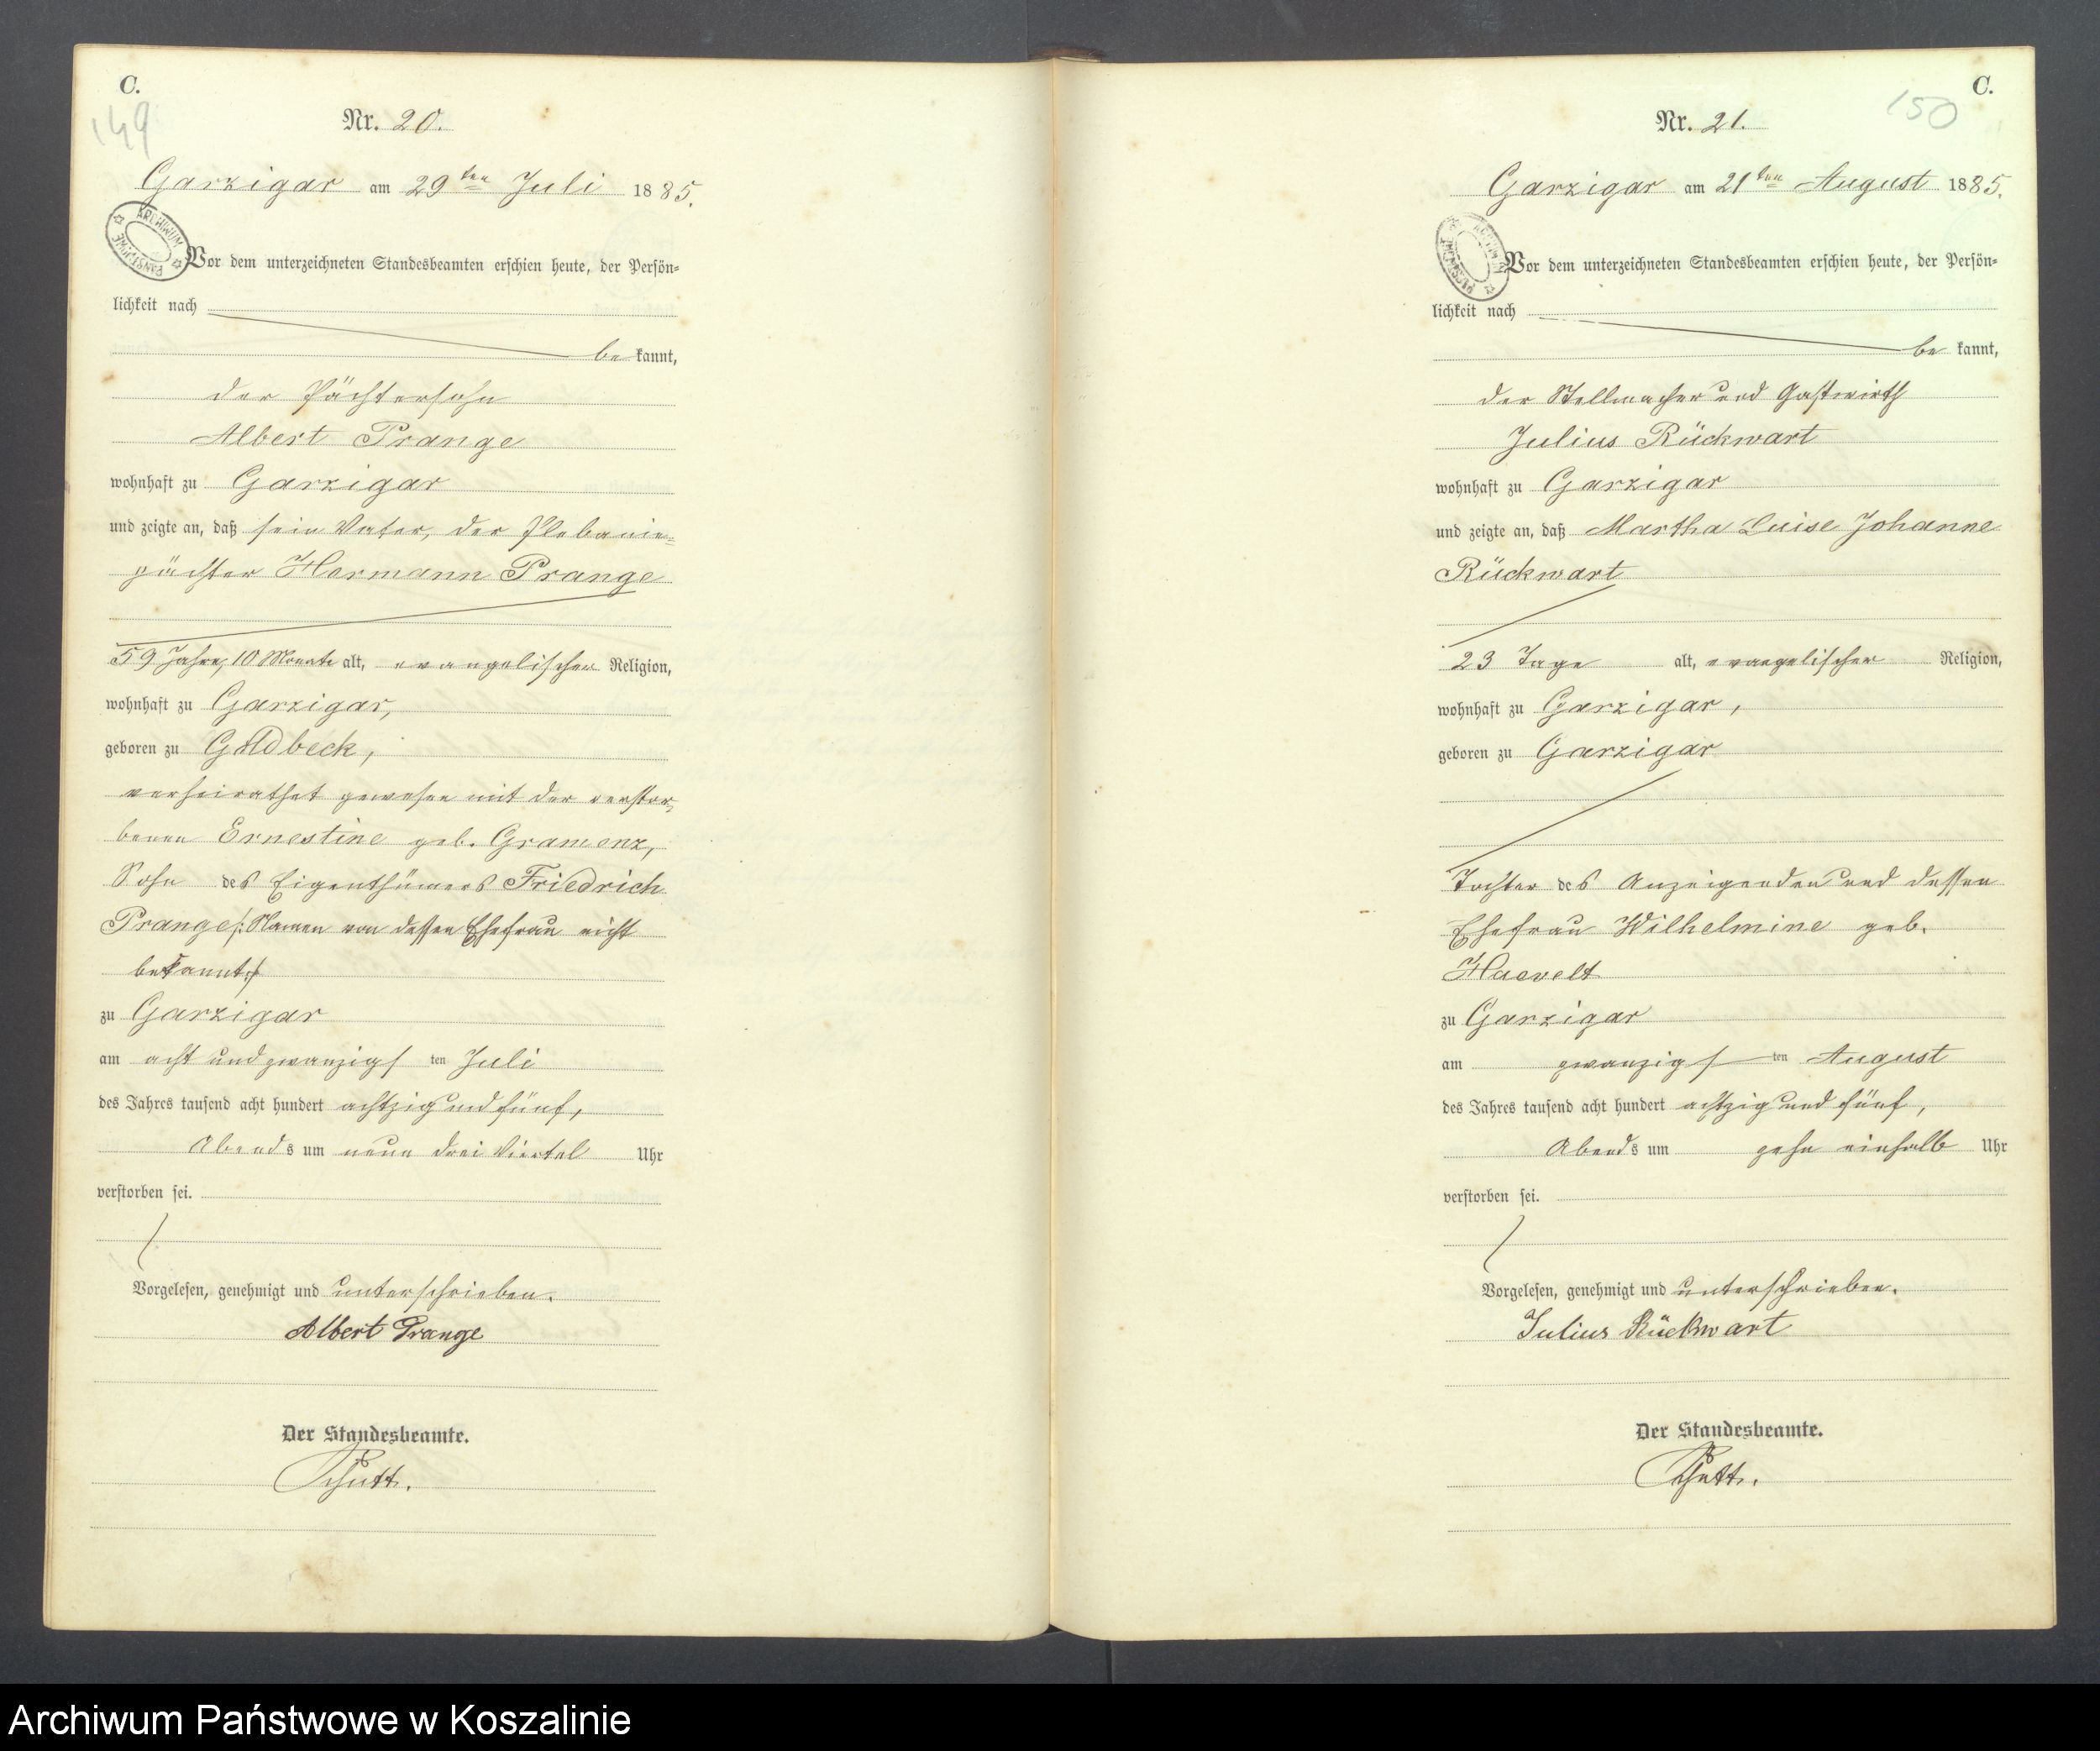 C.
149
Nr. 20.
Garzigar am 29ten Juli 1885.
ARCHIWUM PAŃSTWOWE
Vor dem unterzeichneten Standesbeamten erschien heute, der Persön=
lichkeit nach
be kannt,
der Pächtersohn
Albert Prange
wohnhaft zu Garzigar
und zeigte an, daß sein Vater, der Plebanie=
pächter Hermann Prange
59 Jahre, 10 Monate alt, evangelischer Religion,
wohnhaft zu Garzigar,
geboren zu Goldbeck,
verheirathet gewesen mit der verstor=
benen Ernestine geb. Gramenz,
Sohn des Eigenthümers Friedrich
Prange /: Namen von dessen Ehefrau nicht
bekannt :/
zu Garzigar
am acht und zwanzigsten Juli
des Jahres tausend acht hundert achtzig und fünf,
Abends um neun drei Viertel Uhr
verstorben sei.
Vorgelesen, genehmigt und unterschrieben.
Albert Prange
Der Standesbeamte.
Schutt.
C.
150
Nr. 21.
Garzigar am 21ten August 1885.
ARCHIWUM PAŃSTWOWE
Vor dem unterzeichneten Standesbeamten erschien heute, der Persön=
lichkeit nach
be kannt,
der Stellmacher und Gastwirth
Julius Rückwart
wohnhaft zu Garzigar
und zeigte an, daß Martha Luise Johanne
Rückwart
23 Tage alt, evangelischer Religion,
wohnhaft zu Garzigar,
geboren zu Garzigar
Tochter des Anzeigenden und dessen
Ehefrau Wilhelmine geb.
Haevelt
zu Garzigar
am zwanzigsten August
des Jahres tausend acht hundert achtzig und fünf,
Abends um zehn einhalb Uhr
verstorben sei.
Vorgelesen, genehmigt und unterschrieben.
Julius Rückwart
Der Standesbeamte.
Schutt.
Archiwum Państwowe w Koszalinie